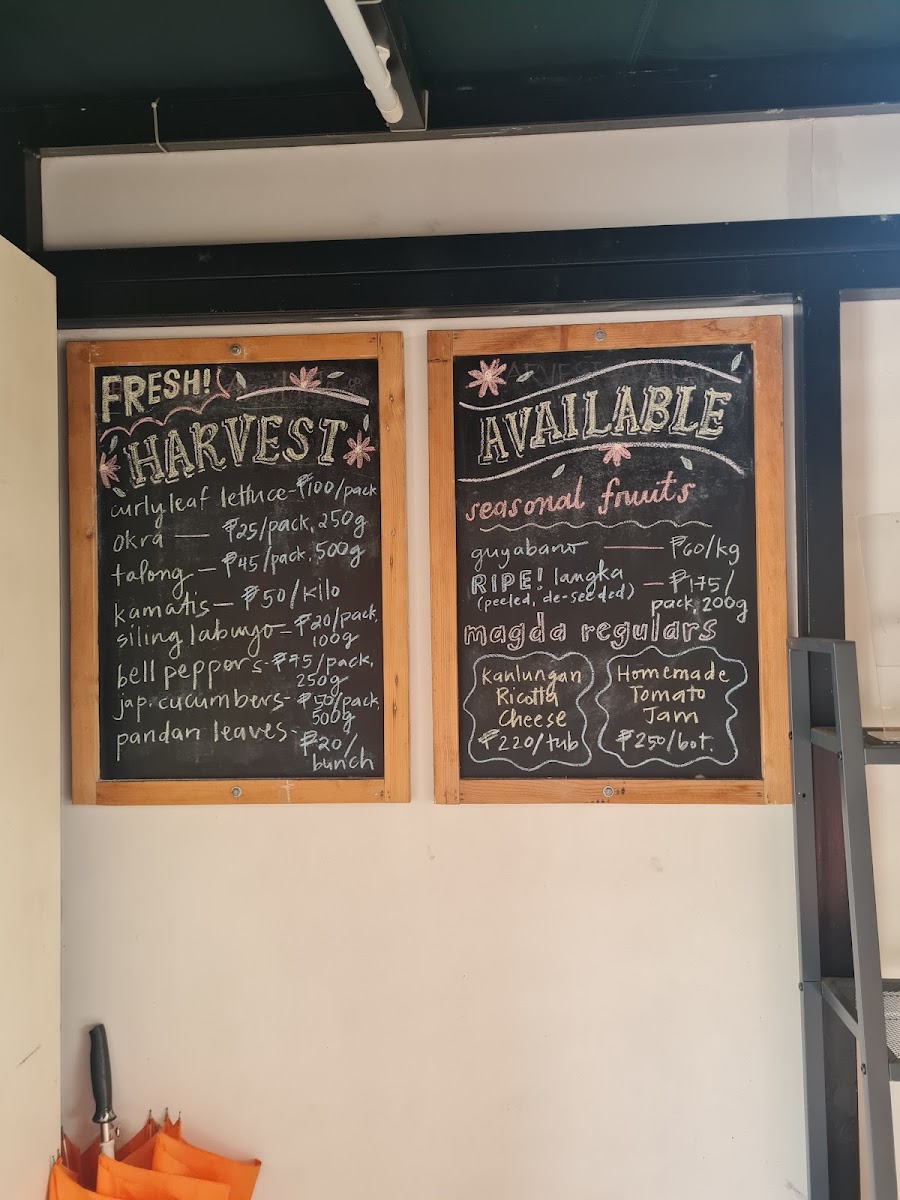 FRESH!
HARVEST
curly leaf lettuce-₱100/pack
okra — ₱25/pack, 250g
talong — ₱45/pack, 500g
kamatis — ₱50/kilo
siling labuyo — ₱20/pack,
100g
bell peppers - ₱75/pack,
250g
jap. cucumbers - ₱50/pack
500g
pandan leaves -
₱20/
bunch
AVAILABLE
seasonal fruits
guyabano — ₱60/kg
RIPE! langka — ₱175/
(peeled, de-seeded) pack, 200g
magda regulars
Kanlungan
Ricotta
Cheese
₱220/tub
Homemade
Tomato
Jam
₱250/bot.